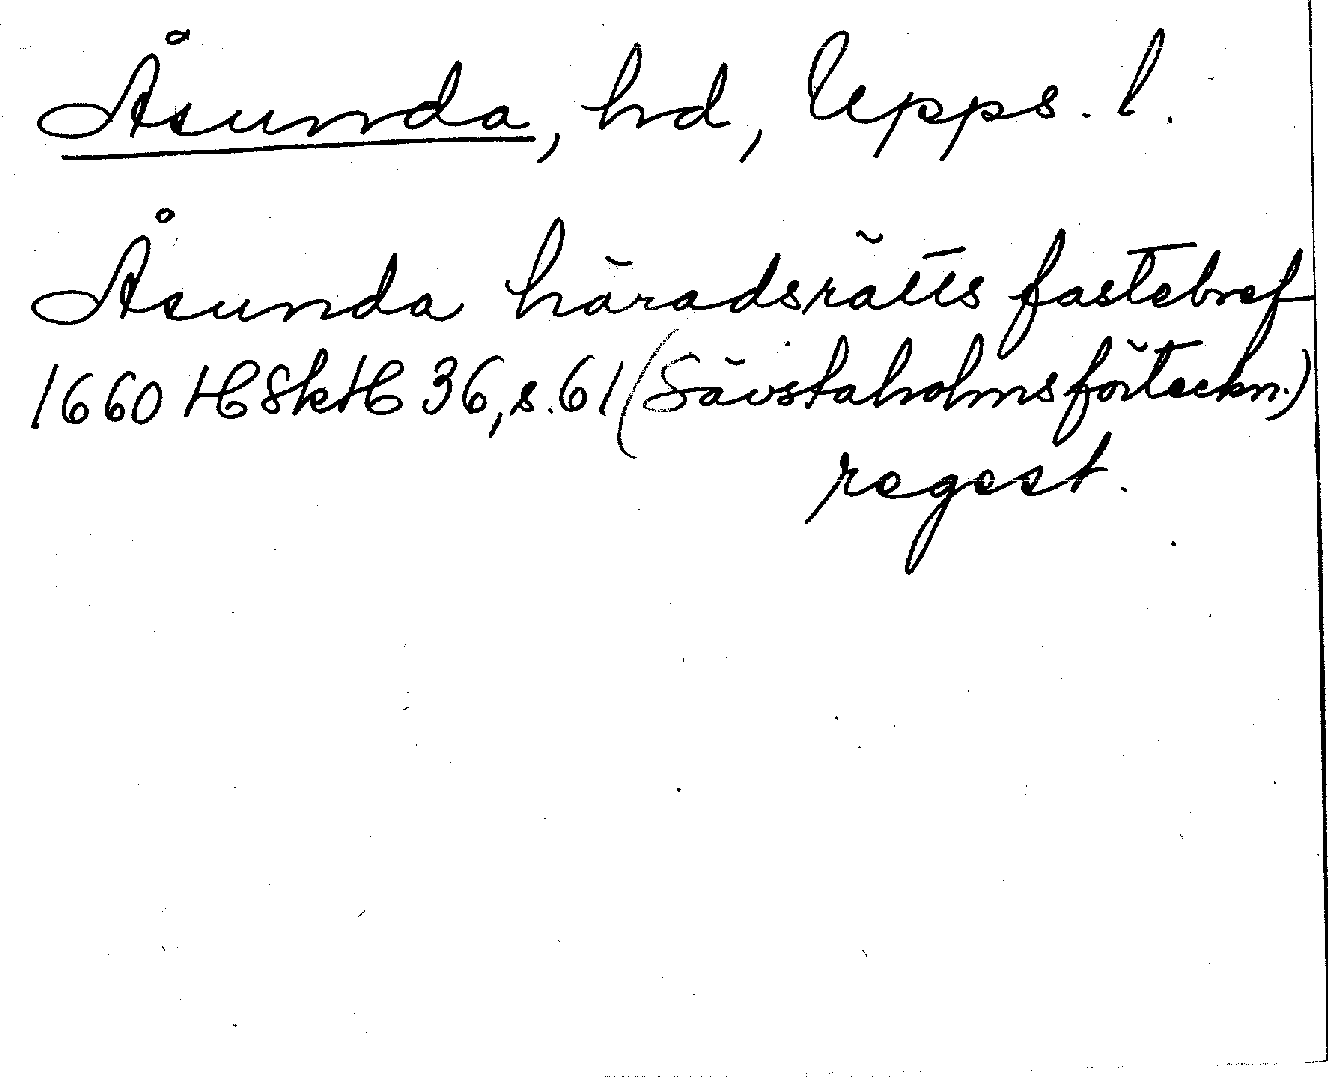 Åsunda, hd, Upps. l.
Åsunda häradsrätts fastebref
1660 HSkH 36, s. 61 (Sävstaholmsförteckn.)
regest.